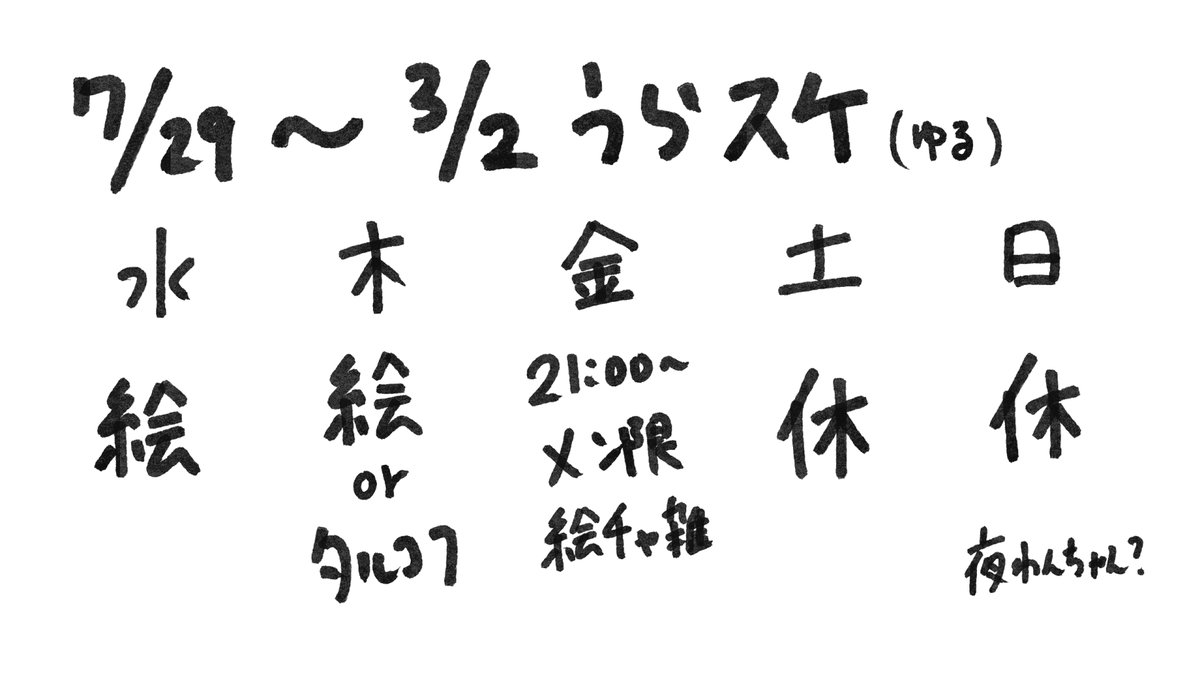 7/29 〜 3/2 うらスケ (ゆる)
水 木 金 土 日
絵 絵 or タルコフ 21:00〜 メン限 絵チャ雑 休 休
夜わんちゃん?